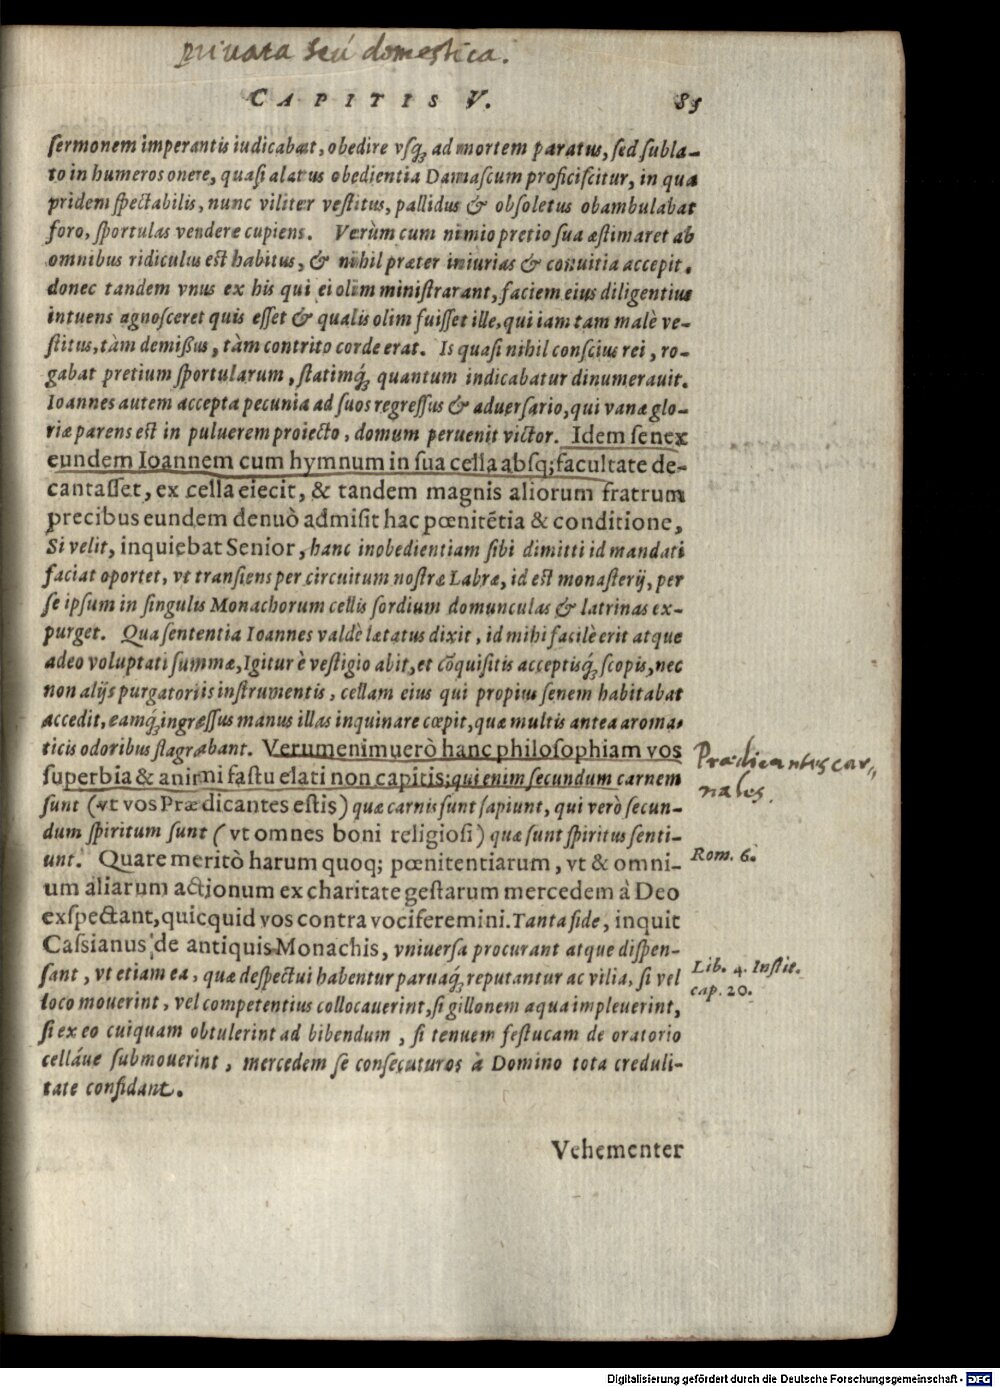 privata seú domestica.
CAPITIS V. 85
sermonem imperantis iudicabat, obedire vsq́; ad mortem paratus, sed subla-
to in humeros onere, quasi alatus obedientia Damascum proficiscitur, in qua
pridem spectabilis, nunc viliter vestitus, pallidus & obsoletus obambulabat
foro, sportulas vendere cupiens. Verùm cum nimio pretio sua æstimaret ab
omnibus ridiculus est habitus, & nihil præter iniurias & conuitia accepit.
donec tandem vnus ex his qui ei olim ministrarant, faciem eius diligentius
intuens agnosceret quis esset & qualis olim fuisset ille, qui iam tam malè ve-
stitus, tàm demißus, tàm contrito corde erat. Is quasi nihil conscius rei, ro-
gabat pretium sportularum, statimq́; quantum indicabatur dinumerauit.
Ioannes autem accepta pecunia ad suos regressus & aduersario, qui vanæ glo-
riæ parens est in puluerem proiecto, domum peruenit victor. Idem senex
eundem Ioannem cum hymnum in sua cella absq; facultate de-
cantasset, ex cella eiecit, & tandem magnis aliorum fratrum
precibus eundem denuò admisit hac pœnitẽtia & conditione,
Si velit, inquiebat Senior, hanc inobedientiam sibi dimitti id mandati
faciat oportet, vt transiens per circuitum nostræ Labræ, id est monasterij, per
se ipsum in singulis Monachorum cellis sordium domunculas & latrinas ex-
purget. Qua sententia Ioannes valdè lætatus dixit, id mihi facilè erit atque
adeo voluptati summæ, Igitur è vestigio abit, et cõquisitis acceptisq́; scopis, nec
non alijs purgatoriis instrumentis, cellam eius qui propius senem habitabat
accedit, eamq́; ingressus manus illas inquinare cœpit, quæ multis antea aroma-
ticis odoribus flagrabant. Verumenimuerò hanc philosophiam vos
superbia & animi fastu elati non capitis; qui enim secundum carnem
sunt (vt vos Prædicantes estis) quæ carnis sunt sapiunt, qui verò secun-
dum spiritum sunt (vt omnes boni religiosi) quæ sunt spiritus senti-
unt. Quare meritò harum quoq; pœnitentiarum, vt & omni-
um aliarum actionum ex charitate gestarum mercedem à Deo
exspectant, quicquid vos contra vociferemini. Tanta fide, inquit
Cassianus de antiquis Monachis, vniuersa procurant atque dispen-
sant, vt etiam ea, quæ despectui habentur paruaq́; reputantur ac vilia, si vel
loco mouerint, vel competentius collocauerint, si gillonem aqua impleuerint,
si ex eo cuiquam obtulerint ad bibendum, si tenuem festucam de oratorio
celláue submouerint, mercedem se consecuturos à Domino tota creduli-
tate confidant.
Vehementer
Prædicantes car„
nales.
Rom. 6.
Lib. 4. Instit.
cap. 20.
Digitalisierung gefördert durch die Deutsche Forschungsgemeinschaft - DFG